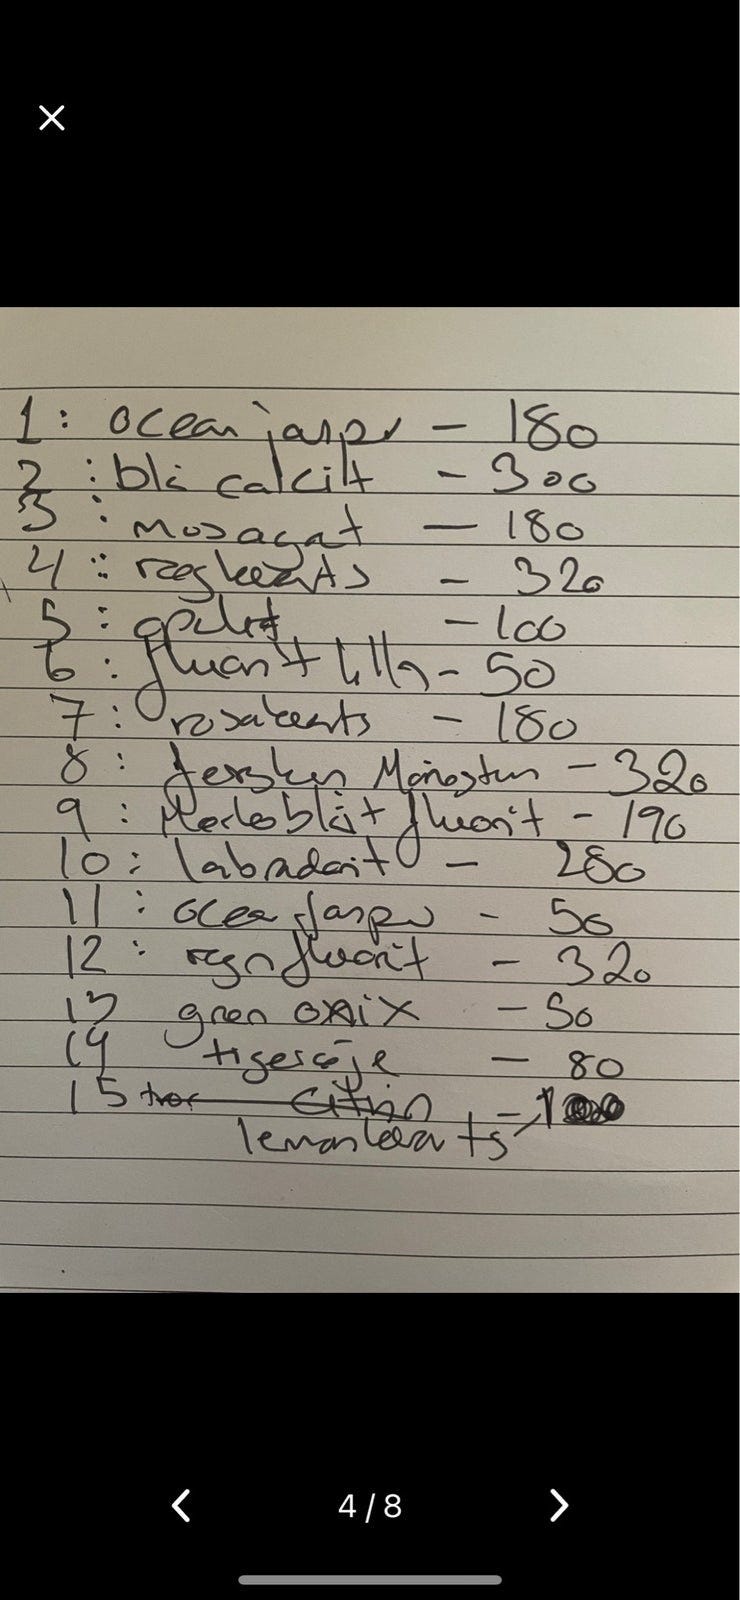 1: ocean jaspr - 180
2: blå calcitt - 300
3: mosagat - 180
4: røgkvarts - 320
5: opalit - 100
6: fluorit lilla - 50
7: rosakvarts - 180
8: fersken Månesten - 320
9: Mørkeblåt fluorit - 190
10: labradorit - 280
11: ocean jaspr - 50
12: regnfluorit - 320
13 grøn onix - 50
14 tigerøje - 80
15 citrin
lemonkvarts - 100
4 / 8